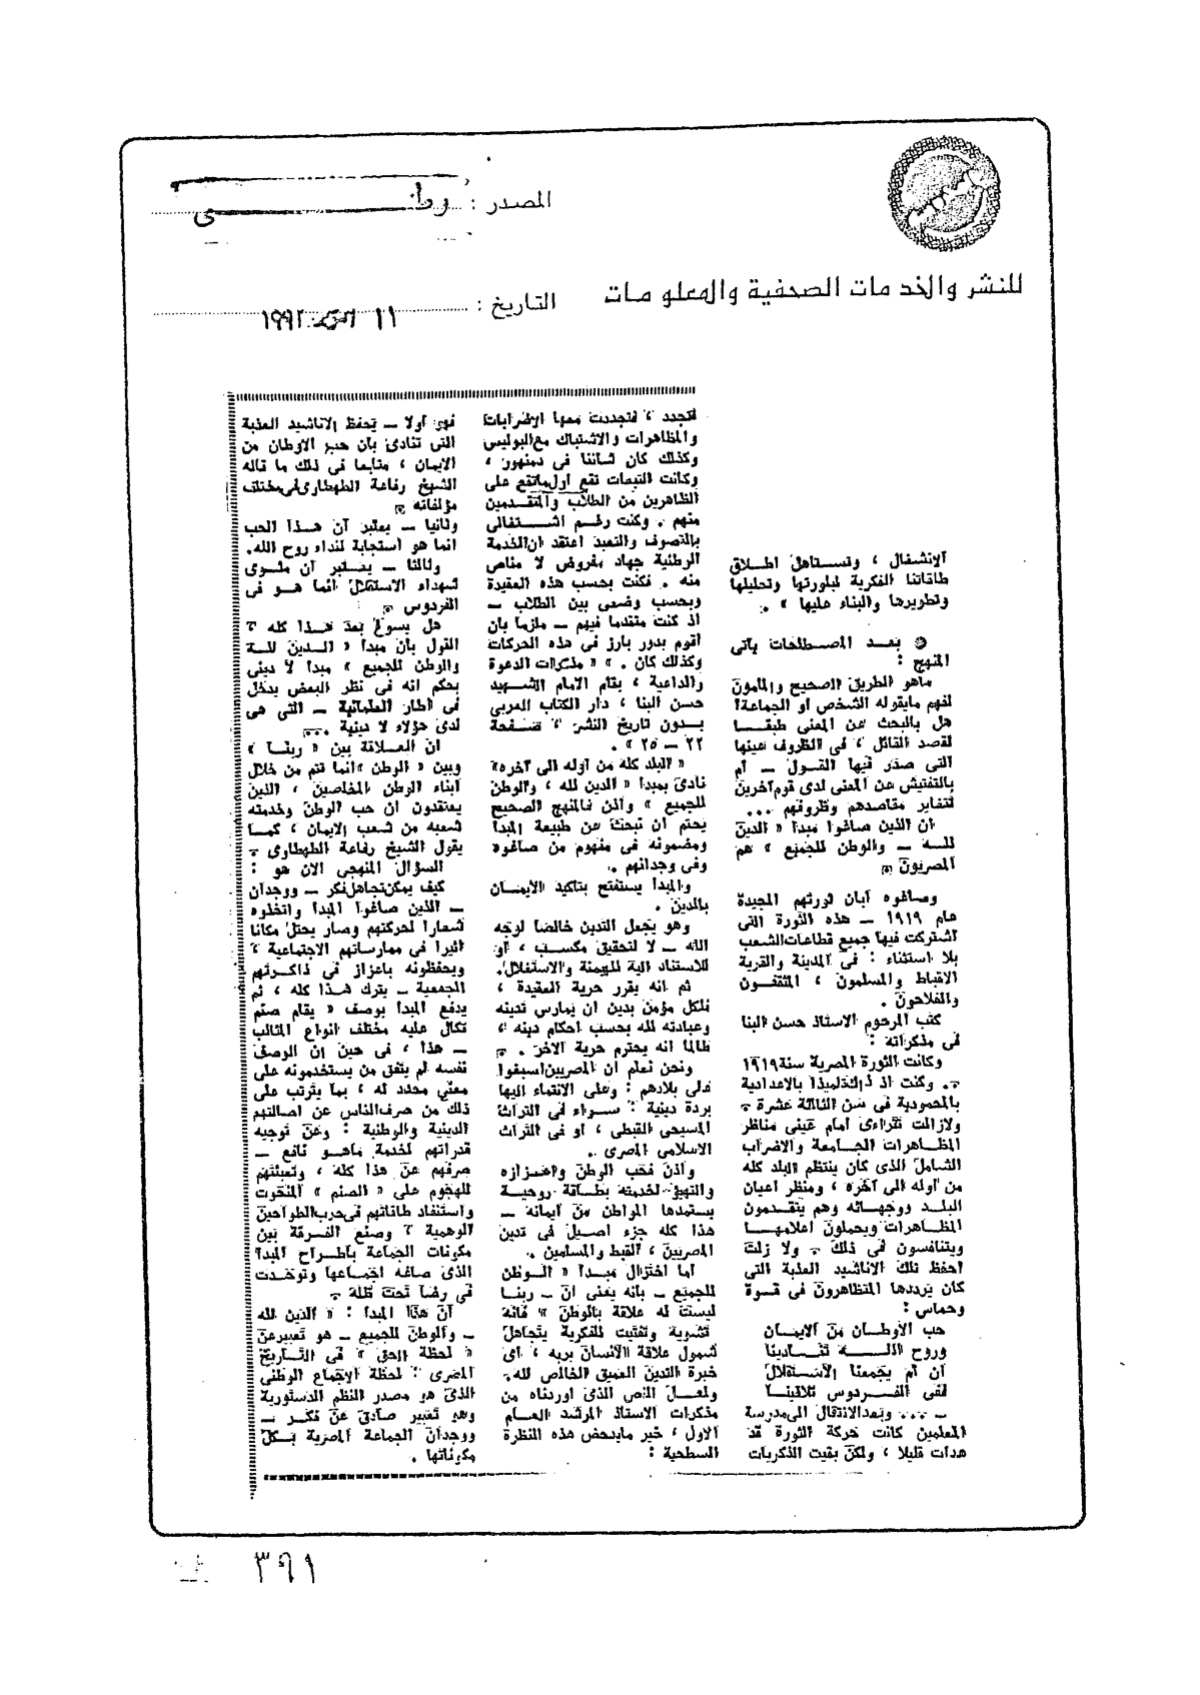 المصدر : وطنى
للنشر والخدمات الصحفية والمعلومات
التاريخ : ١١ ١٩٩٢
الانشغال ، وتستاهل اطلاق
طاقاتنا الفكرية لبلورتها وتحليلها
وتطويرها والبناء عليها » .
● بعد المصطلحات يأتى
المنهج :
ماهو الطريق الصحيح والمأمون
لفهم مايقوله الشخص او الجماعة؟
هل بالبحث عن المعنى طبقا
لقصد القائل ، فى الظروف عينها
التى صدر فيها القول ــ أم
بالتفتيش عن المعنى لدى قوم آخرين
تتغاير مقاصدهم وظروفهم ...
ان الذين صاغوا مبدأ « الدين
لله ــ والوطن للجميع » هم
المصريون
وصاغوه أبان ثورتهم المجيدة
عام ١٩١٩ ــ هذه الثورة التى
اشتركت فيها جميع قطاعات الشعب
بلا استثناء : فى المدينة والقرية
الاقباط والمسلمون ، المثقفون
والفلاحون .
كتب المرحوم الاستاذ حسن البنا
فى مذكراته :
وكانت الثورة المصرية سنة ١٩١٩
وكنت اذ ذاك تلميذا بالاعدادية
بالمحمودية فى سن الثالثة عشرة
ولازالت تتراءى أمام عينى مناظر
المظاهرات الجامعة والاضراب
الشامل الذى كان ينتظم البلد كله
من أوله الى آخره ، ومنظر اعيان
البلد ووجهائه وهم يتقدمون
المظاهرات ويحملون اعلامها
ويتنافسون فى ذلك ولا زلت
احفظ تلك الاناشيد العذبة التى
كان يرددها المتظاهرون فى قوة
وحماس :
حب الأوطان من الايمان
وروح الله تنادينا
ان لم يجمعنا الاستقلال
ففى الفردوس تلاقينا
ــ ... وبعد الانتقال الى مدرسة
المعلمين كانت حركة الثورة قد
هدأت قليلا ، ولكن بقيت الذكريات
تتجدد ، فتجددت معها الاضرابات
والمظاهرات والاشتباك مع البوليس
وكذلك كان شأننا فى دمنهور ،
وكانت التبعات تقع أول ماتقع على
الظاهرين من الطلاب والمتقدمين
منهم . وكنت رغم اشتغالى
بالتصوف والتعبد أعتقد ان الخدمة
الوطنية جهاد مفروض لا مناص
منه . فكنت بحسب هذه العقيدة
وبحسب وضعى بين الطلاب ــ
اذ كنت متقدما فيهم ــ ملزما بأن
أقوم بدور بارز فى هذه الحركات
وكذلك كان . » « مذكرات الدعوة
والداعية ، بقلم الامام الشهيد
حسن البنا ، دار الكتاب العربى
بدون تاريخ النشر ، صفحة
٢٢ ــ ٢٥ » .
« البلد كله من أوله الى آخره »
نادى بمبدأ « الدين لله ، والوطن
للجميع » واذن فالمنهج الصحيح
يحتم ان نبحث عن طبيعة المبدأ
ومضمونه فى مفهوم من صاغوه
وفى وجدانهم .
والمبدأ يستفتح بتأكيد الايمان
بالدين .
وهو يجعل التدين خالصا لوجه
الله ــ لا لتحقيق مكسب ، أو
للاستناد اليه للهيمنة والاستغلال .
ثم انه يقرر حرية العقيدة ،
فلكل مؤمن بدين ان يمارس تدينه
وعبادته لله بحسب احكام دينه ،
طالما انه يحترم حرية الآخر .
ونحن نعلم ان المصريين اسبغوا
على بلادهم : وعلى الانتماء اليها
بردة دينية : سواء فى التراث
المسيحى القبطى ، او فى التراث
الاسلامى المصرى .
واذن فحب الوطن واعزازه
والتهيؤ لخدمته بطاقة روحية
يستمدها المواطن من أيمانه ــ
هذا كله جزء اصيل فى تدين
المصريين ، القبط والمسلمين .
أما اختزال مبدأ « الوطن
للجميع ــ بانه يعنى ان ــ ربنا
ليست له علاقة بالوطن » فانه
تشويه وتفتيت للفكرية يتجاهل
شمول علاقة الانسان بربه ، أى
خبرة التدين العميق الخالص لله
ولعل النص الذى أوردناه من
مذكرات الاستاذ المرشد العام
الاول ، خير مايدحض هذه النظرة
السطحية :
فهو أولا ــ يحفظ الاناشيد العذبة
التى تنادى بان حب الأوطان من
الايمان ، متابعا فى ذلك ما قاله
الشيخ رفاعة الطهطاوى فى مختلف
مؤلفاته
وثانيا ــ يعتبر أن هذا الحب
انما هو استجابة لنداء روح الله .
وثالثا ــ يعتبر أن مثوى
شهداء الاستقلال انما هو فى
الفردوس
هل يسوغ بعد هذا كله ؟
القول بان مبدأ « الدين لله
والوطن للجميع » مبدأ لا دينى
بحكم انه فى نظر البعض يدخل
فى اطار العلمانية ــ التى هى
لدى هؤلاء لا دينية ...
ان العلاقة بين « ربنا »
وبين « الوطن » انما تتم من خلال
أبناء الوطن المخلصين ، الذين
يعتقدون ان حب الوطن وخدمته
شعبه من شعب الايمان ، كما
يقول الشيخ رفاعة الطهطاوى
السؤال المنهجى الان هو :
كيف يمكن تجاهل فكر ــ ووجدان
ــ الذين صاغوا المبدأ واتخذوه
شعارا لحركتهم وصار يحتل مكانا
اثيرا فى ممارساتهم الاجتماعية ؟
ويحفظونه باعزاز فى ذاكرتهم
الجمعية ــ يترك هذا كله ، ثم
يدفع المبدأ بوصف « يقام صنم
تكال عليه مختلف انواع المثالب
ــ هذا ، فى حين ان الوصف
نفسه لم يتفق من يستخدمونه على
معنى محدد له ، بما يترتب على
ذلك من صرف الناس عن اصالتهم
الدينية والوطنية : وعن توجيه
قدراتهم لخدمة ماهو نافع ــ
صرفهم عن هذا كله ، وتعبئتهم
للهجوم على « الصنم » المنحوت
واستنفاد طاقاتهم فى حرب الطواحين
الوهمية ؟ وصنع الفرقة بين
مكونات الجماعة باطراح المبدأ
الذى صاغه اجماعها وتوحدت
فى رضا تحت ظله
أن هذا المبدأ : « الدين لله
ــ والوطن للجميع ــ هو تعبير عن
« لحظة الحق » فى التاريخ
المصرى : لحظة الاجماع الوطنى
الذى هو مصدر النظم الدستورية
وهو تعبير صادق عن فكر ــ
ووجدان الجماعة المصرية بكل
مكوناتها .
٣٩١